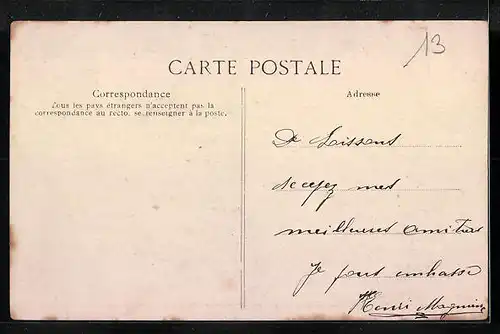 13
CARTE POSTALE
Correspondance
Tous les pays étrangers n'acceptent pas la
correspondance au recto. se renseigner à la poste.
Adresse
De Soissons
recevez mes
meilleures amitiés
je vous embrasse
Henri Magnier